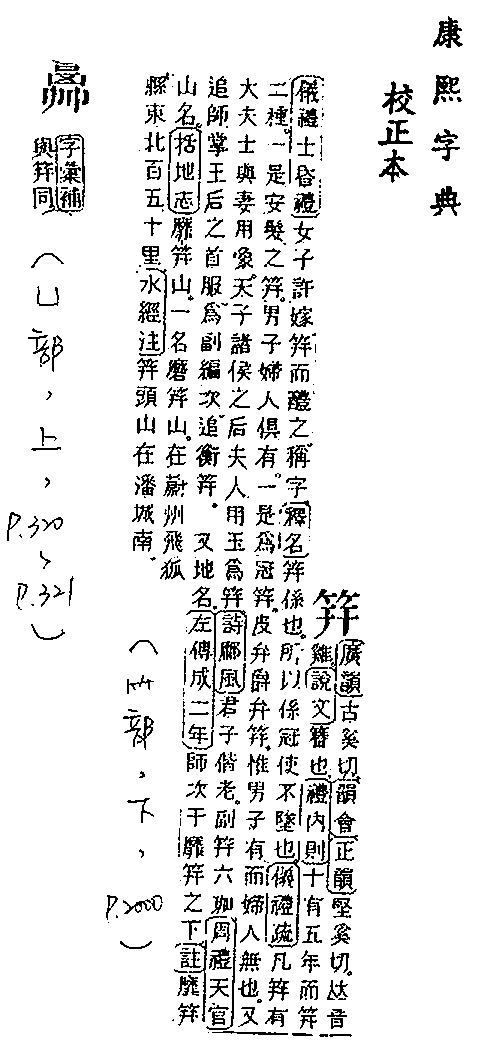 康熙字典
校正本
笄
廣韻古奚切韻會正韻堅奚切𠀤音
雞說文簪也禮內則十有五年而笄
儀禮士昏禮女子許嫁笄而醴之稱字釋名笄係也。所以係冠使不墜也儀禮疏凡笄有
二種。一是安髮之笄。男子婦人俱有。一是爲冠笄。皮弁爵弁笄。惟男子有而婦人無也。又
大夫士與妻用象。天子諸侯之后夫人用玉爲笄詩鄘風君子偕老。副笄六珈周禮天官
追師掌王后之首服。爲副編次。追衡笄。 又地名。左傳成二年師次于靡笄之下註靡笄
山名。括地志靡笄山。一名磨笄山。在蔚州飛狐
縣東北百五十里水經注笄頭山在潘城南。
(竹部,下,
P.2000)
字彙補
與笄同
(凵部,上,
P.320、
P.321)